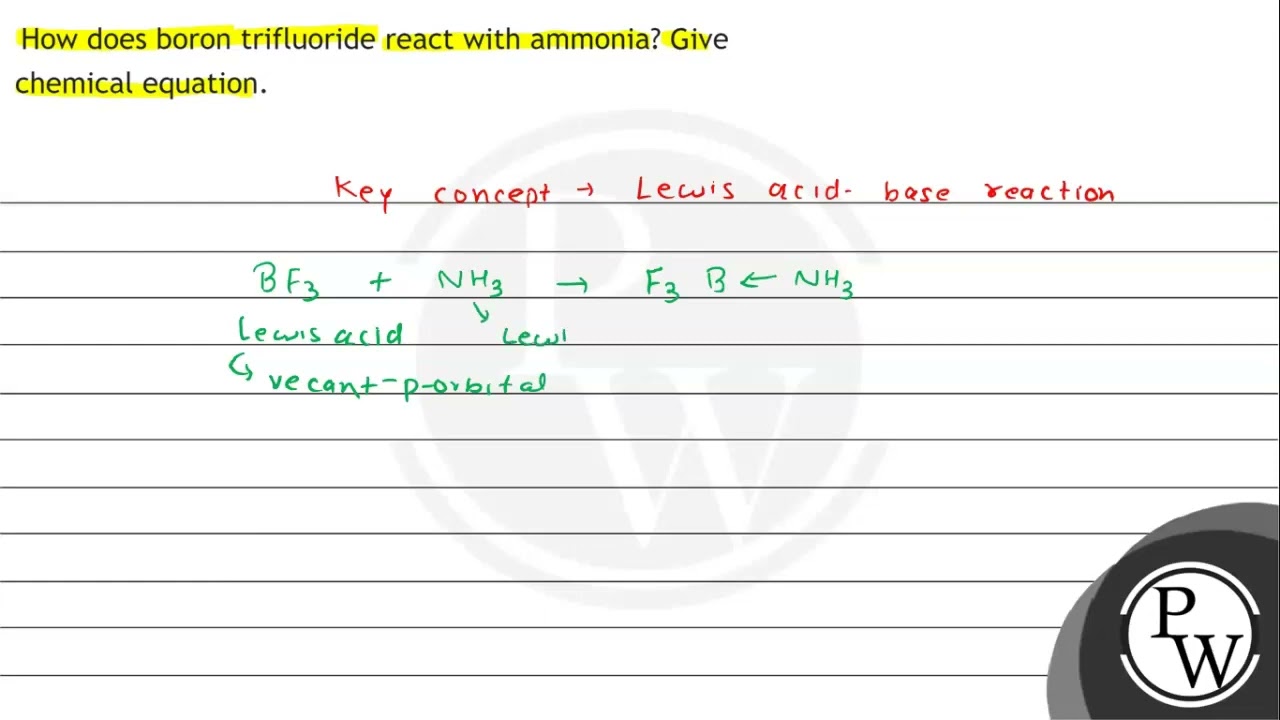 How does boron trifluoride react with ammonia? Give
chemical equation.
Key concept → Lewis acid- base reaction
BF3 + NH3 → F3 B ← NH3
Lewis acid Lewi
vecant-p-orbital
PW
PW